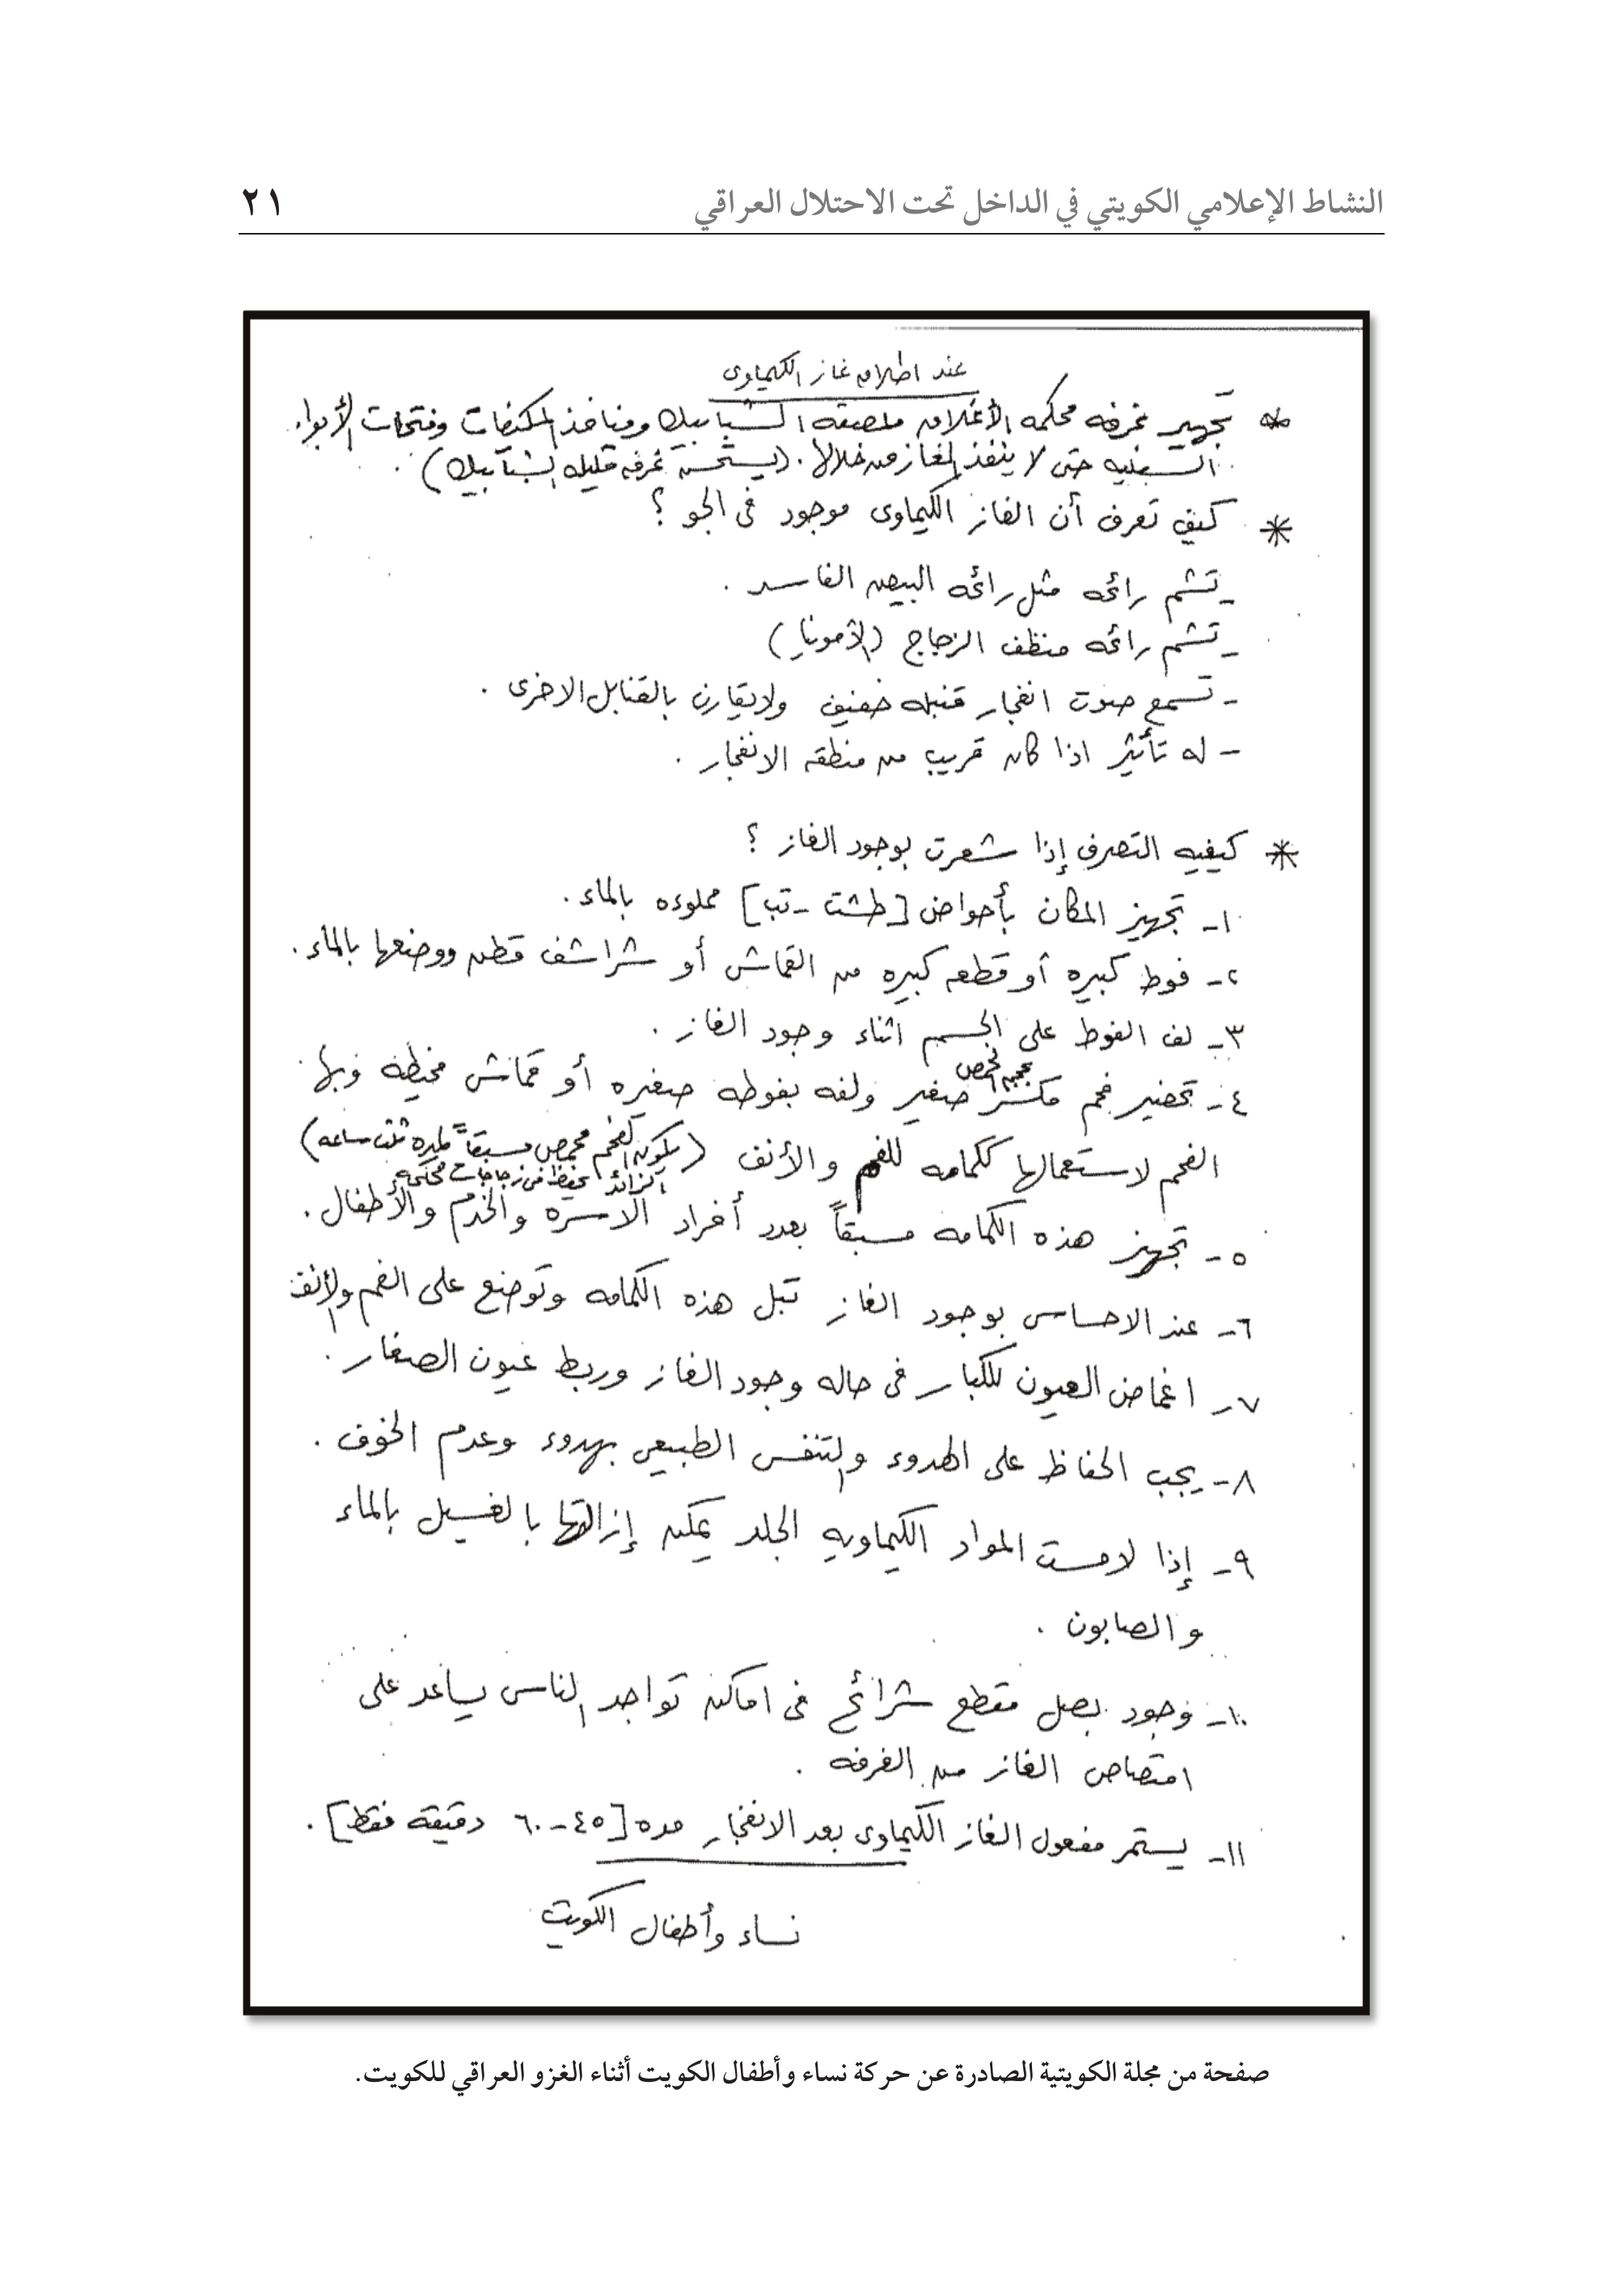 النشاط الإعلامي الكويتي في الداخل تحت الاحتلال العراقي ٢١
عند اطلاق غاز الكيماوى
* تجهيز غرفه محكمه الأغلاق ملصقه الشبابيك ومنافذ المكيفات وفتحات الأبواب
السفليه حتى لا ينفذ الغاز من خلالا. (يستحسن غرفه قليله الشبآبيك).
* كيف تعرف أن الغاز الكيماوى موجود فى الجو ؟
- تشم رائحه مثل رائحه البيض الفاسد.
- تشم رائحه منظف الزجاج (الأمونيا)
- تسمع صوت انفجار قنبله خفيف ولايقارن بالقنابل الاخرى.
- له تأثير اذا كان قريب من منطقه الانفجار.
* كيفيه التصرف إذا شعرت بوجود الغاز ؟
١- تجهيز المكان بأحواض [طشت - تب] مملوءه بالماء.
٢- فوط كبيره أو قطعه كبيره من القماش أو شراشف قطن ووضعها بالماء.
٣- لف الفوط على الجسم اثناء وجود الغاز.
بحجم الحمص
٤- تحضير فحم مكسر صغير ولفه بفوطه صغيره أو قماش مخيطه وبها
الفحم لاستعمالها ككمامه للفم والأنف (يكون الفحم محمص مسبقاً لمده ثلث ساعه)
الزائد يحفظ فى زجاجات محكمه
٥- تجهيز هذه الكمامه مسبقاً بعدد أفراد الاسره والخدم والأطفال.
٦- عند الاحساس بوجود الغاز تبل هذه الكمامه وتوضع على الفم والأنف
٧- اغماض العيون للكبار فى حاله وجود الغاز وربط عيون الصغار.
٨- يجب الحفاظ على الهدوء والتنفس الطبيعي بهدوء وعدم الخوف.
٩- إذا لامست المواد الكيماويه الجلد يمكن إزالتها بالغسيل بالماء
والصابون.
١٠- وجود بصل مقطع شرائح فى اماكن تواجد الناس يساعد على
امتصاص الغاز من الغرفه.
١١- يستمر مفعول الغاز الكيماوى بعد الانفجار مده [٤٥-٦٠ دقيقه فقط].
نساء وأطفال الكويت
صفحة من مجلة الكويتية الصادرة عن حركة نساء وأطفال الكويت أثناء الغزو العراقي للكويت.